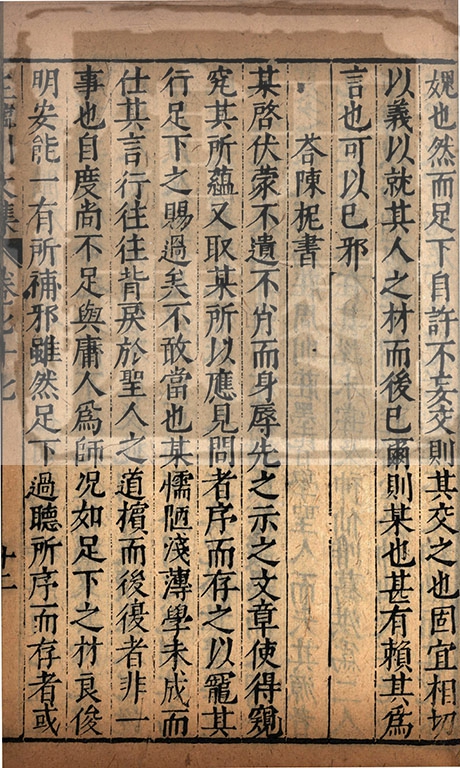 媿也然而足下自許不妄交則其交之也固宜相切
以義以就其人之材而後已爾則某也甚有賴其爲
言也可以已邪
答陳柅書
某啓伏蒙不遺不肖而身辱先之示之文章使得窺
究其所蘊又取某所以應見問者序而存之以寵其
行足下之賜過矣不敢當也某懦陋淺薄學未成而
仕其言行往往背戾於聖人之道擯而後復者非一
事也自度尚不足與庸人爲師况如足下之材良俊
明安能一有所補邪雖然足下過聽所序而存者或
王臨川文集 卷七十七 十二